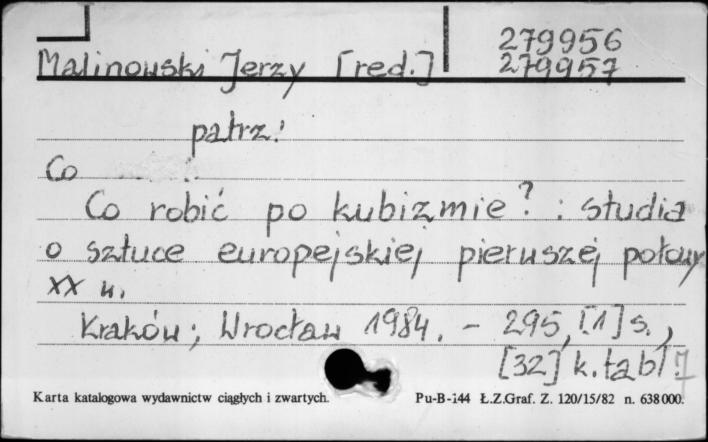 279956
Malinowski Jerzy [red.] 279957
patrz:
Co
Co robić po kubizmie? : studia
o sztuce europejskiej pierwszej połowy
XX w.
Kraków ; Wrocław 1984. - 295, [1] s.,
[32] k. tabl.
Karta katalogowa wydawnictw ciągłych i zwartych. Pu-B-144 Ł.Z.Graf. Z. 120/15/82 n. 638000.